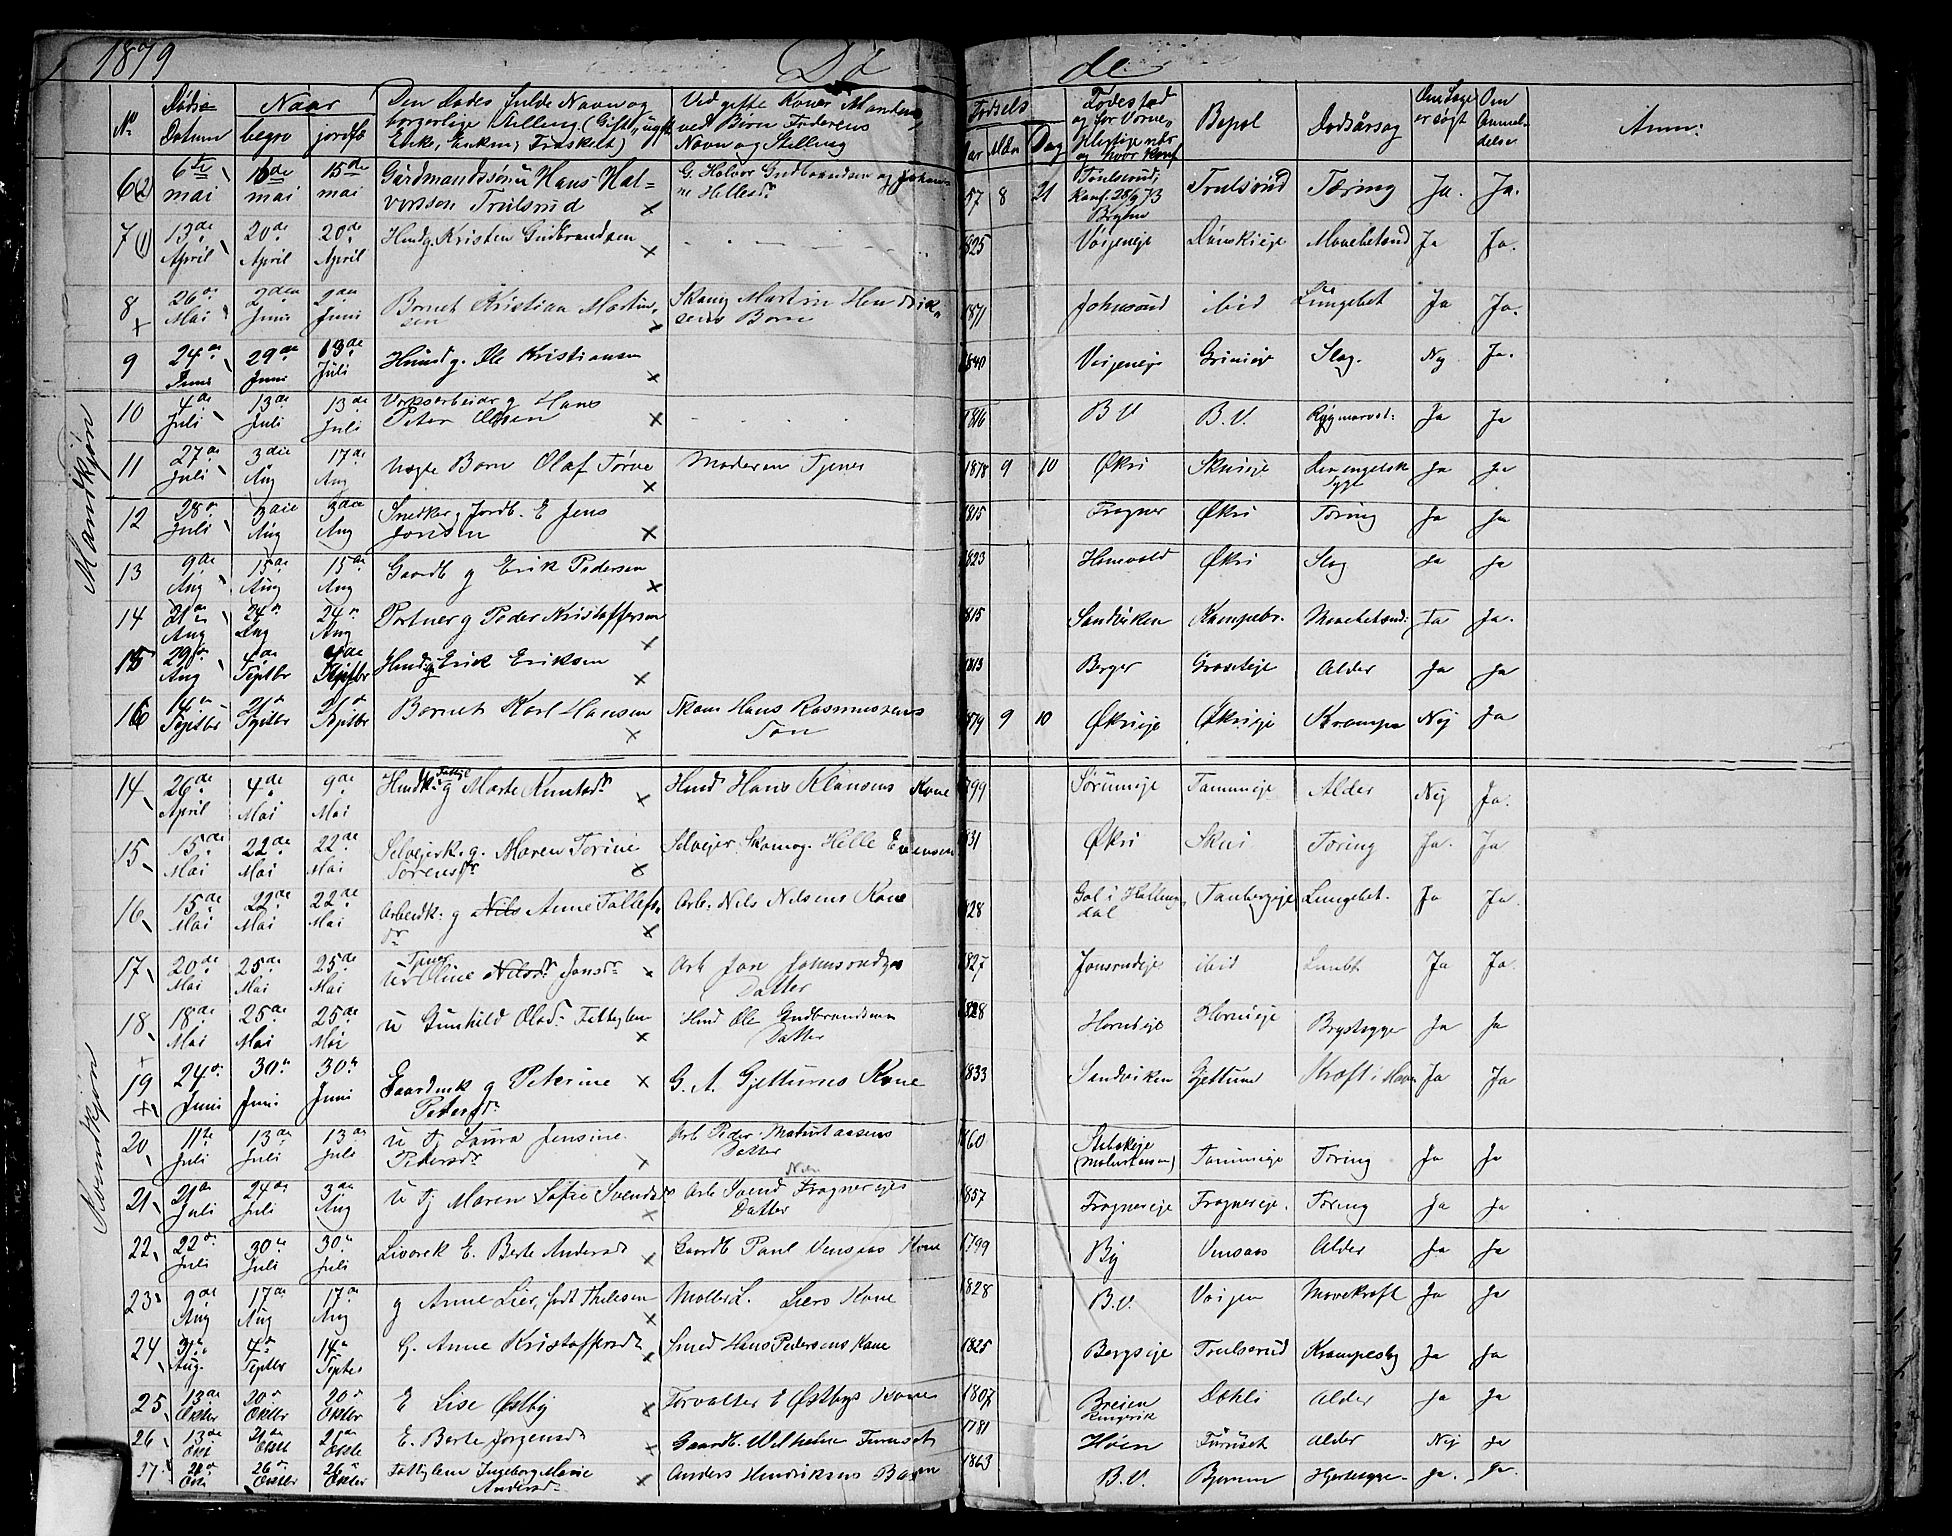 1879 Døde
No Døds- Datum Naar begrv jordf. Den Dødes fulde Navn og borgerlige Stilling (Gift, ugift Enke, Enkem, Fraskilt) Ved gifte Koner Mandens, ved Børn Faderens Navn og Stilling Fødsels Aar Mdn Dag Fødested og for Bopæl Dødsårsag Om Læge er søgt Om Anmeldelse Anm:
Mandkjøn
6(2) 6te mai 10de mai 15de mai Gårdmandssøn u Hans Halvorssøn Trulsrud x G. Halvor Gudbrandsen og 57 8 21 Konf. 28/9 73 Trulsrud Tæring Ja. Ja.
7(1) 13de April 20de April 20de April Husm g Kristen Gudbrandsen x 1825 Vøjeneje Dønskieje Mavebetænd Ja Ja.
8 + 26de Mai 2den Juni 2den Juni Barnet Kristian Martinsen x Skomg Martin Hendriksens Barn 1871 Johnsrud ibid Lungebet Ja Ja.
9 24de Juni 29de Juni 13de Juli Husmd g. Ole Kristiansen x 1840 Vøjeneje Grinieje Slag. Nej Ja.
10 4de Juli 13de Juli 13de Juli Verksarbeider g Hans Peter Olsen x 1816 B.V B.V. Rygmarvst: Ja Ja
11 27de Juli 3die Aug 17de Aug Uægte Barn Olaf Tørve x Moderen Tjener 1878 9 10 Økri Skuieje Den engelsk syge Ja Ja
12 28de Juli 3die Aug 3die Aug Snedker g Jordb. E Jens Jonsen x 1815 Frogner Økri Tæring Ja Ja
13 9de Aug 15de Aug 15de Aug Gaardb g Erik Pedersen x 1823 Økri Slag Ja Ja
14 21de Aug 24de Aug 24de Aug Portner g Peder Kristoffersen x 1815 Sandviken Kampebr. Mavebetænd: Ja Ja.
15 29de Aug 4de Septbr 4de Septbr Husmd g Erik Eriksen x 1813 Berger Alder Ja Ja
16 14de Septbr 21de Septbr 21de Septbr Barnet Karl Hansen x Skom Hans Rasmussens Søn 1879 9 10 Økrieje Økrieje Krampe Nej Ja
Kvindkjøn
14 26de April 4de Mai 9de Mai Husmk: g Marte Knutsdr x Husmd Hans Klausens Kone 1799 Sørumeje Tanumeje Alder Nej Ja.
15 15de Mai 22de Mai 22de Mai Selvejerk. g. Maren Torine Sørensdr x Selvejer Skomag. Helle Evensen 1831 Økri Skui Tæring Ja. Ja
16 15de Mai 22de Mai 22de Mai Arbeidk: g Nils Anne Tollefsdr x Arb: Nils Nilsens Kone 1828 Gol i Hallingdal Tanbergeje Lungebet. Ja Ja.
17 20de Mai 25de Mai 25de Mai U Tjener Oline Nilsdr Jonsdr x Arb Jon Johnsrudejes Datter 1827 Jonsrudeje ibid Lunbt Ja Ja.
18 18de Mai 25de Mai 25de Mai U Gunhild Olsdr Fattiglem x Husmd Ole Gudbrandsens Datter 1828 Horneieje Brystsyge Ja Ja
19 24de Juni 30te Juni 30te Juni Gaardmk g Peterine Petersdr x G. A. Gjettumes Kone 1833 Sandviken Gjettum Kræft i Maven Ja Ja
20 11te Juli 13de Juli 13de Juli U Tj Laura Jensine Pedersdr x Arb Peder Datter 1860 Tanumeje Tæring Ja Ja
21 21de Juli 24de Juli 3die Aug U Tj Maren Sofie Svendsdr x Arb Svend Nils. Frognerejes Datter 1857 Frognereje Frognereje. Tæring Ja Ja
22 22de Juli 30te Juli 30te Juli Livørek E. Berte Andersdr x Gaardb Paul Vensaas Kone 1799 By Vensaas Alder Ja Ja
23 9de Aug 17de Aug 17de Aug g Anne Lier, født Thilesen x Møller L. Liers Kone 1828 B.V. Vøien Mavekræft Ja Ja
24 31te Aug. 4de Septbr 14de Septbr G. Anne Kristoffersdr x Smed Hans Pedersens Kone 1825 Bergseje Trulserud Krampeslag Ja Ja
25 13de Oktbr 20de Oktbr 20de Oktbr E Lise Østby x Forvalter E Østbys Kone 1807 Breien Ringerike Dæhli Alder Ja Ja
26 13de Okt 21de Oktb 21de Oktb E. Berte Jørgensdr x Gaardb. Wilhelm Furuset 1781 Høen Furuset Alder Nej Ja
27 Okt 26de Oktbr 26de Oktbr Fattiglem Ingeborg Marie Andersdr x Anders Hendriksens Barn 1863 B.V. Bjerum Hjertesyge Ja. Ja.